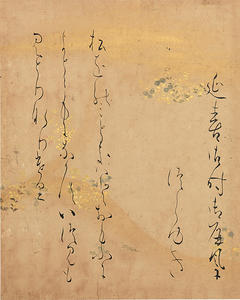 延喜御時御屏風に
つらゆき
松をのみときはとおもふに世
とともになかすいつみも
みとりなりけり